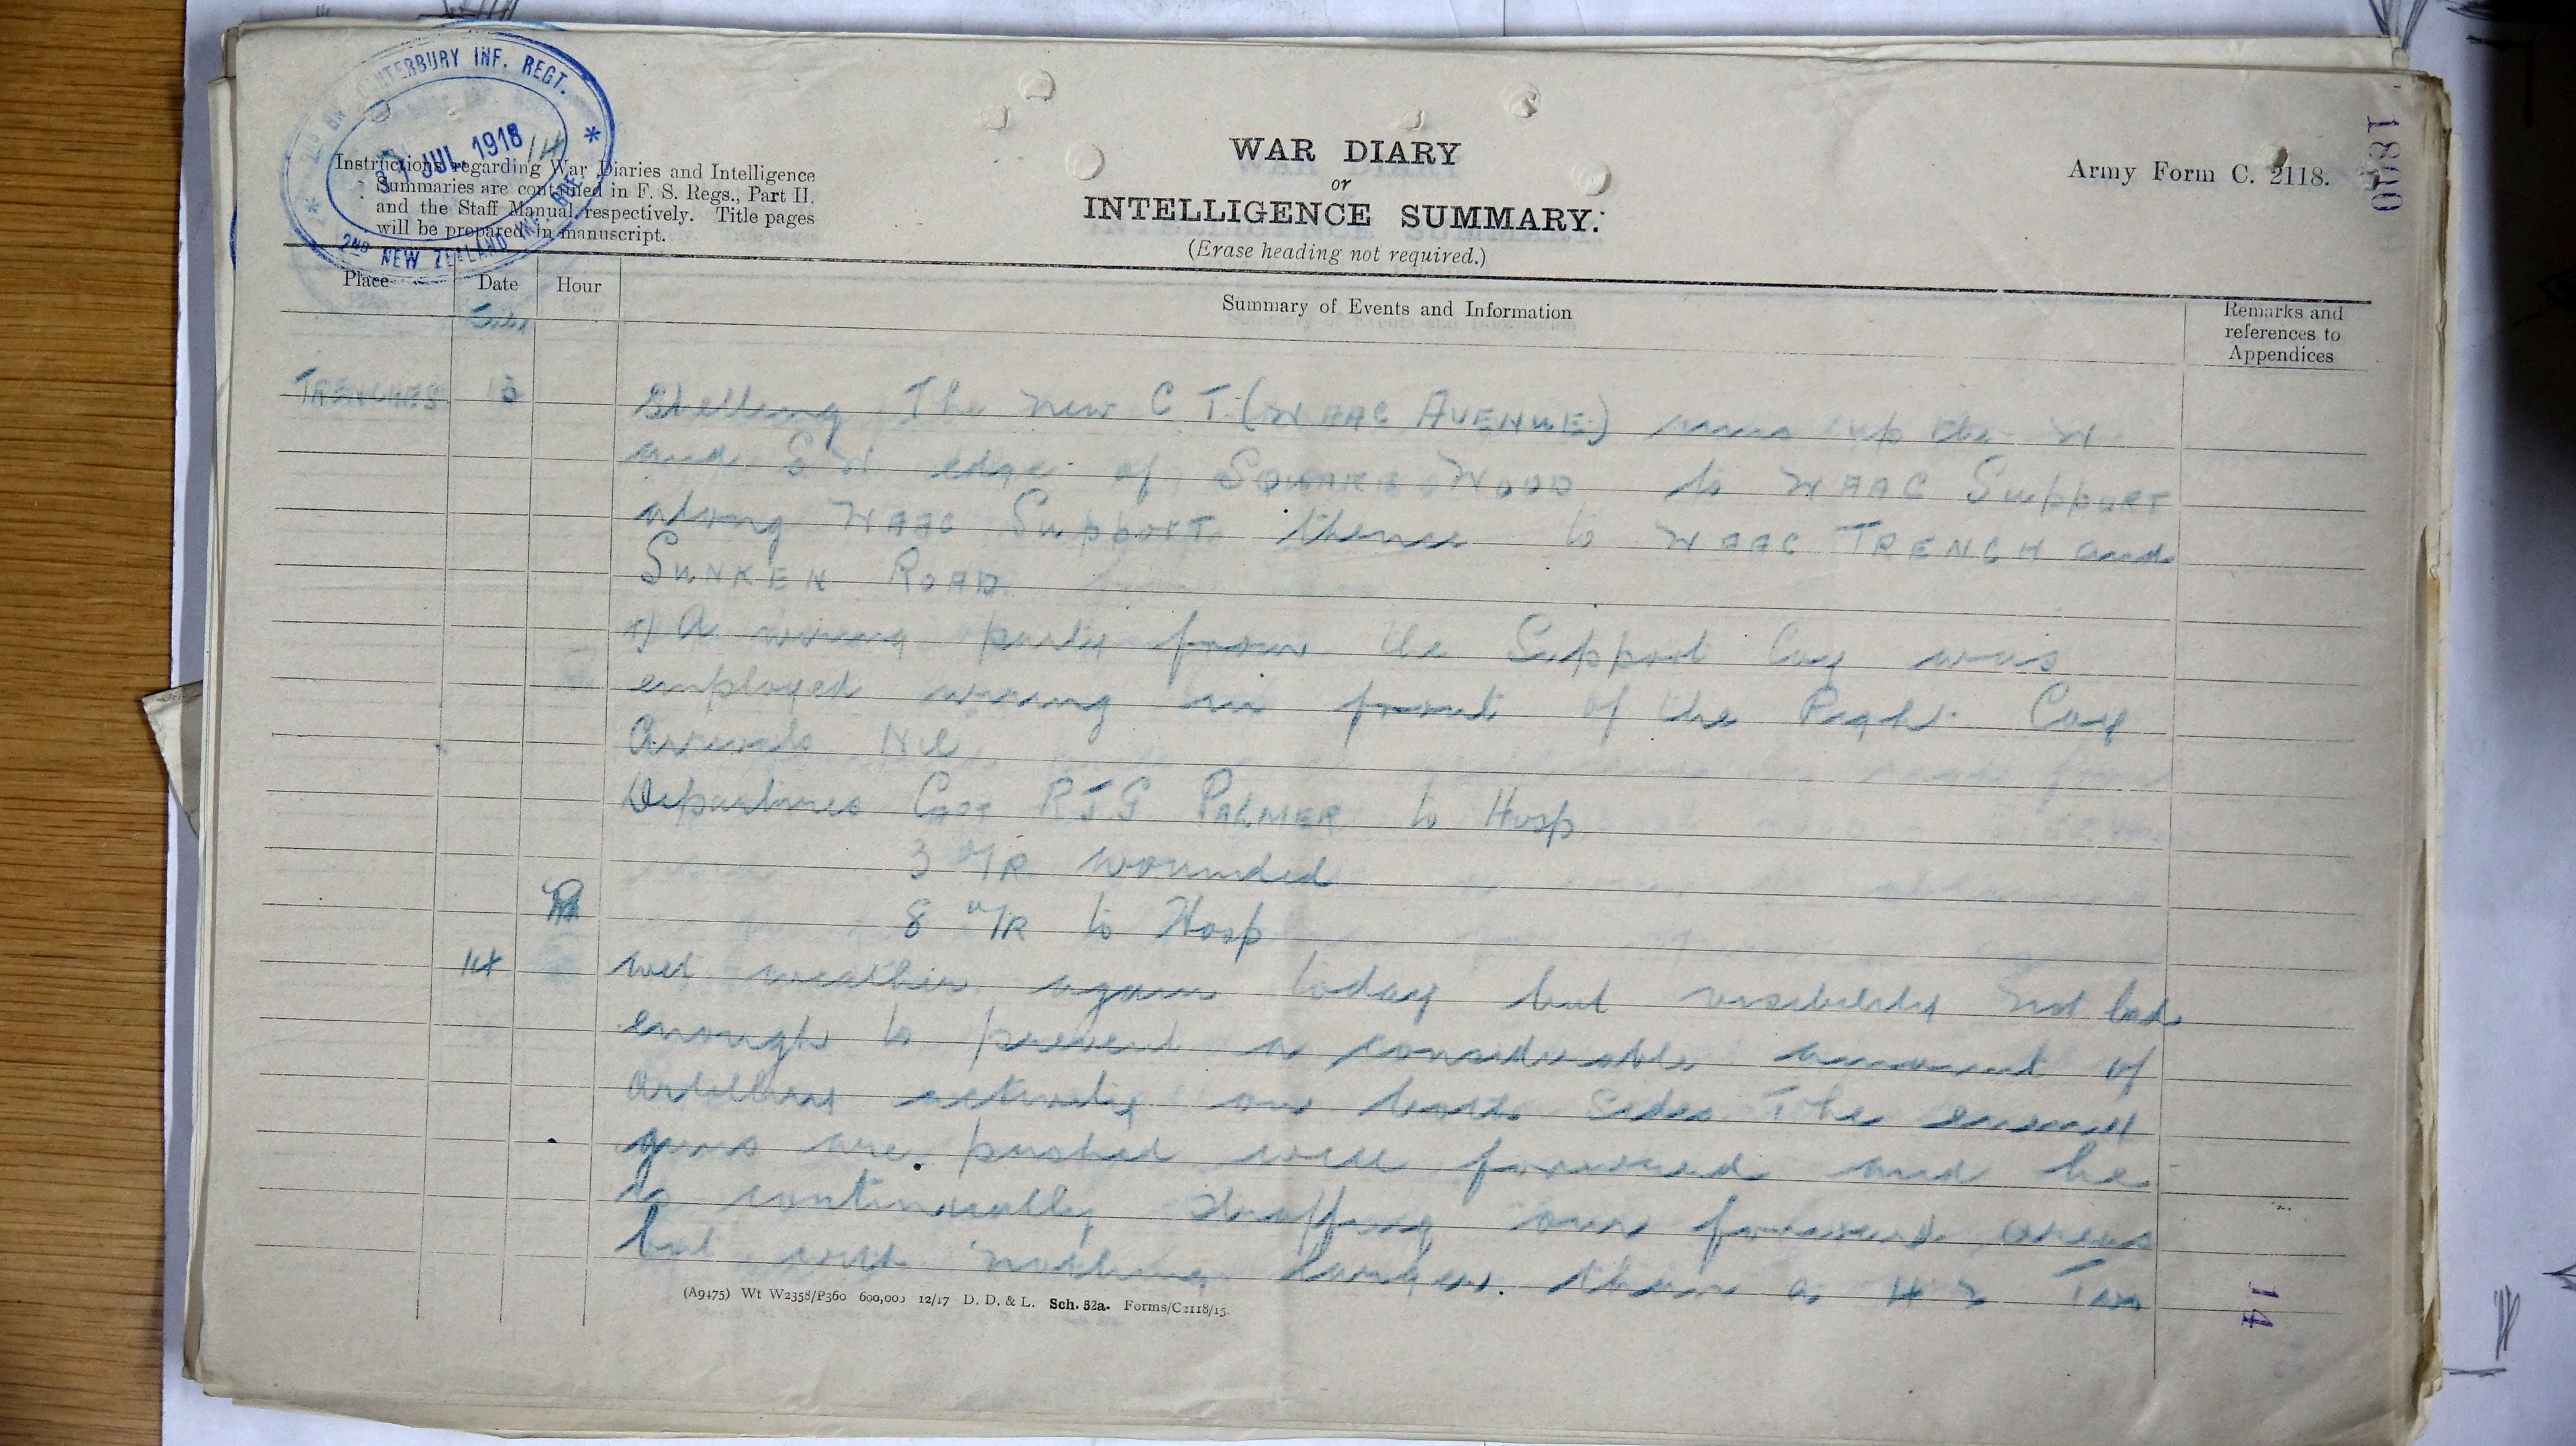 2ND BN. CANTERBURY INF. REGT.
31 JUL 1918
14
2ND NEW ZEALAND INF. BDE.
Instructions regarding War Diaries and Intelligence
Summaries are contained in F. S. Regs., Part II.
and the Staff Manual respectively. Title pages
will be prepared in manuscript.
WAR DIARY
or
INTELLIGENCE SUMMARY.
(Erase heading not required.)
Army Form C. 2118.
0081
Place Date Hour Summary of Events and Information Remarks and
references to
Appendices
TRENCHES 13 Shelling The new C T (WAAC AVENUE) runs up the W
and S W edge of SQUARE WOOD to WAAC SUPPORT
along WAAC SUPPORT thence to WAAC TRENCH and
SUNKEN ROAD
A wiring party from the Support Coy was
employed wiring in front of the Right Coy
Arrivals Nil
Departures Capt PALMER to Hosp
3 O/R wounded
8 O/R to Hosp
14 Wet weather again today but visibility not bad
enough to prevent a considerable amount of
artillery activity on both sides The enemy
guns are pushed well forward and he
is continually straffing our forward areas
but with nothing larger than a 4.2
(A9475) Wt W2358/P360 600,000 12/17 D. D. & L. Sch. 52a. Forms/C2118/15.
14